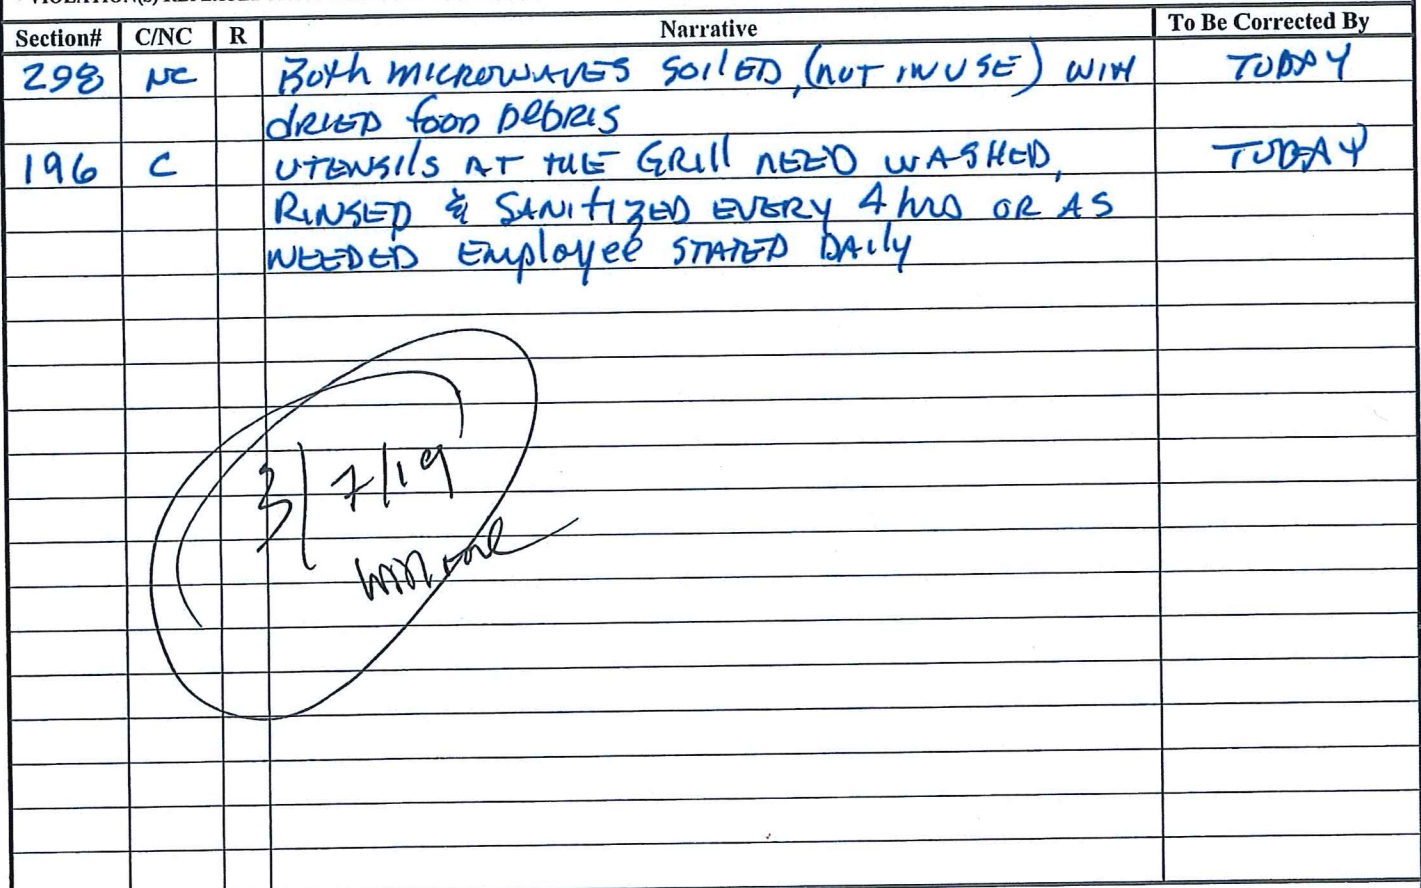 Section# C/NC R Narrative To Be Corrected By
298 NC Both microwaves soiled, (not in use) with TODAY
dried food debris
196 C Utensils at the grill need washed, TODAY
Rinsed & sanitized every 4 hrs or as
needed Employee stated daily
3/7/19